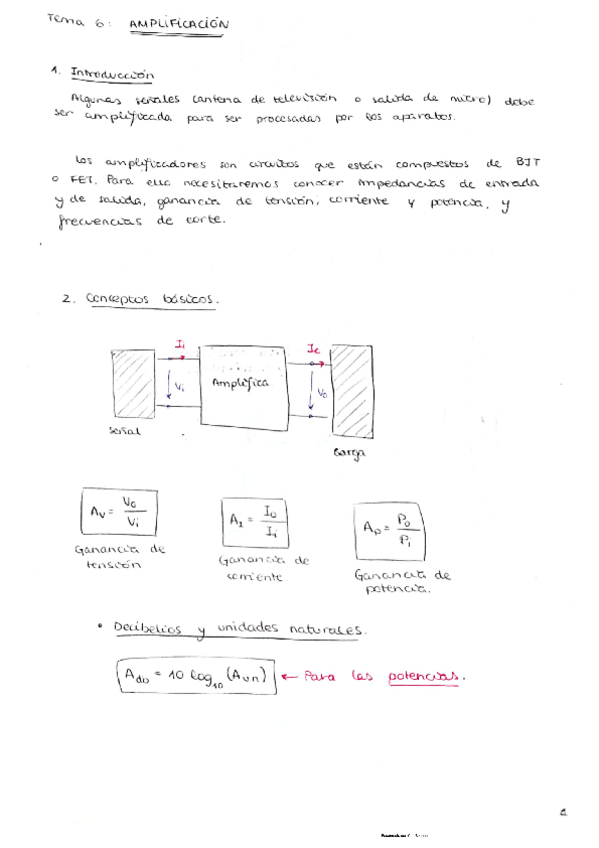 Tema 6: AMPLIFICACIÓN
1. Introducción
Algunas señales (antena de televisión o salida de micro) debe
ser amplificada para ser procesadas por los aparatos.
Los amplificadores son circuitos que están compuestos de BJT
o FET. Para ello necesitaremos conocer impedancias de entrada
y de salida, ganancia de tensión, corriente y potencia, y
frecuencias de corte.
2. Conceptos básicos.
Ii
Vi
Amplifica
Vo
señal
Carga
Av = Vo / Vi
AI = Io / Ii
Ap = Po / Pi
Ganancia de
tensión
Ganancia de
corriente
Ganancia de
potencia.
• Decibelios y unidades naturales.
Adb = 10 log10 (Aun) ← Para las potencias.